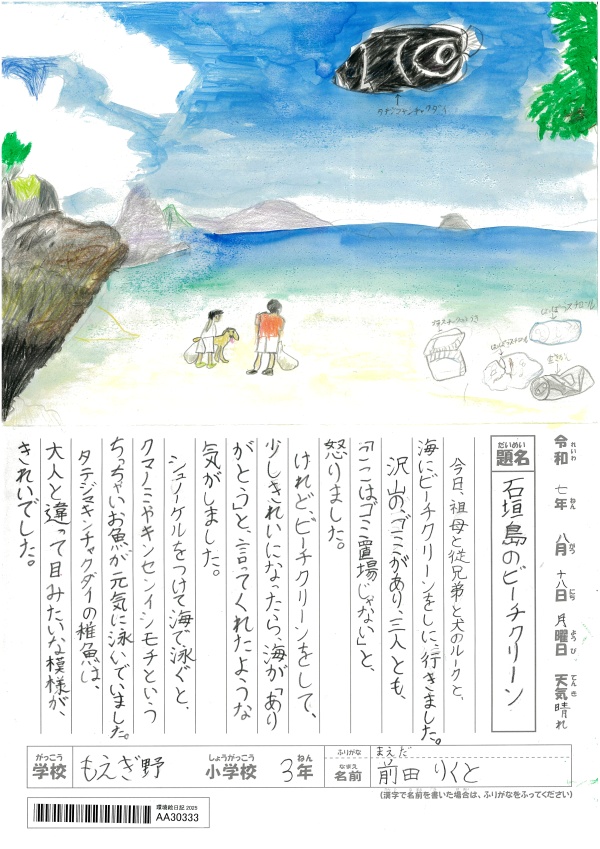 タテジマキンチャクダイ
はっぽうスチロール
はっぽうスチロール
空きかん
令和 七年 八月 十八日 月曜日 天気晴れ
れいわ ねん がつ にち ようび てんき
だいめい
題名
石垣島のビーチクリーン
今日、祖母と従兄弟と犬のルークと、
海にビーチクリーンをしに、行きました。
沢山の、ゴミがあり、三人とも、
「ここはゴミ置場じゃない」と、
怒りました。
けれど、ビーチクリーンをして、
少しきれいになったら、海が「あり
がとう」と、言ってくれたような
気がしました。
シュノーケルをつけて海で泳ぐと、
クマノミやキンセンイシモチという
ちっちゃいお魚が元気に泳いでいました。
タテジマキンチャクダイの稚魚は、
大人と違って目みたいな模様が、
きれいでした。
がっこう
学校
もえぎ野
しょうがっこう
小学校
3
ねん
年
ふりがな
まえだ
なまえ
名前
前田 りくと
(漢字で名前を書いた場合は、ふりがなをふってください)
環境絵日記 2025
AA30333